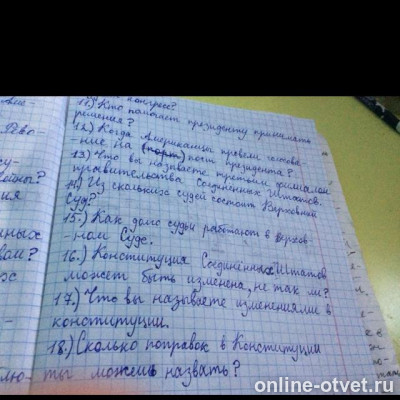 конгресс?
11.) Кто помогает президенту принимать
решения?
12.) Когда Американцы провели голова-
ние на (порт) пост президента?
13.) Что вы называете третьим филиалом
правительства Соединённых Штатов.
14.) Из скольких судей состоит Верховный
Суд?
15.) Как долго судьи работают в верхов-
ном Суде.
16.) Конституция Соединённых Штатов
может быть изменена, не так ли?
17.) Что вы называете изменениями в
конституции.
18.) Сколько поправок в Конституции
ты можешь назвать?
online-otvet.ru